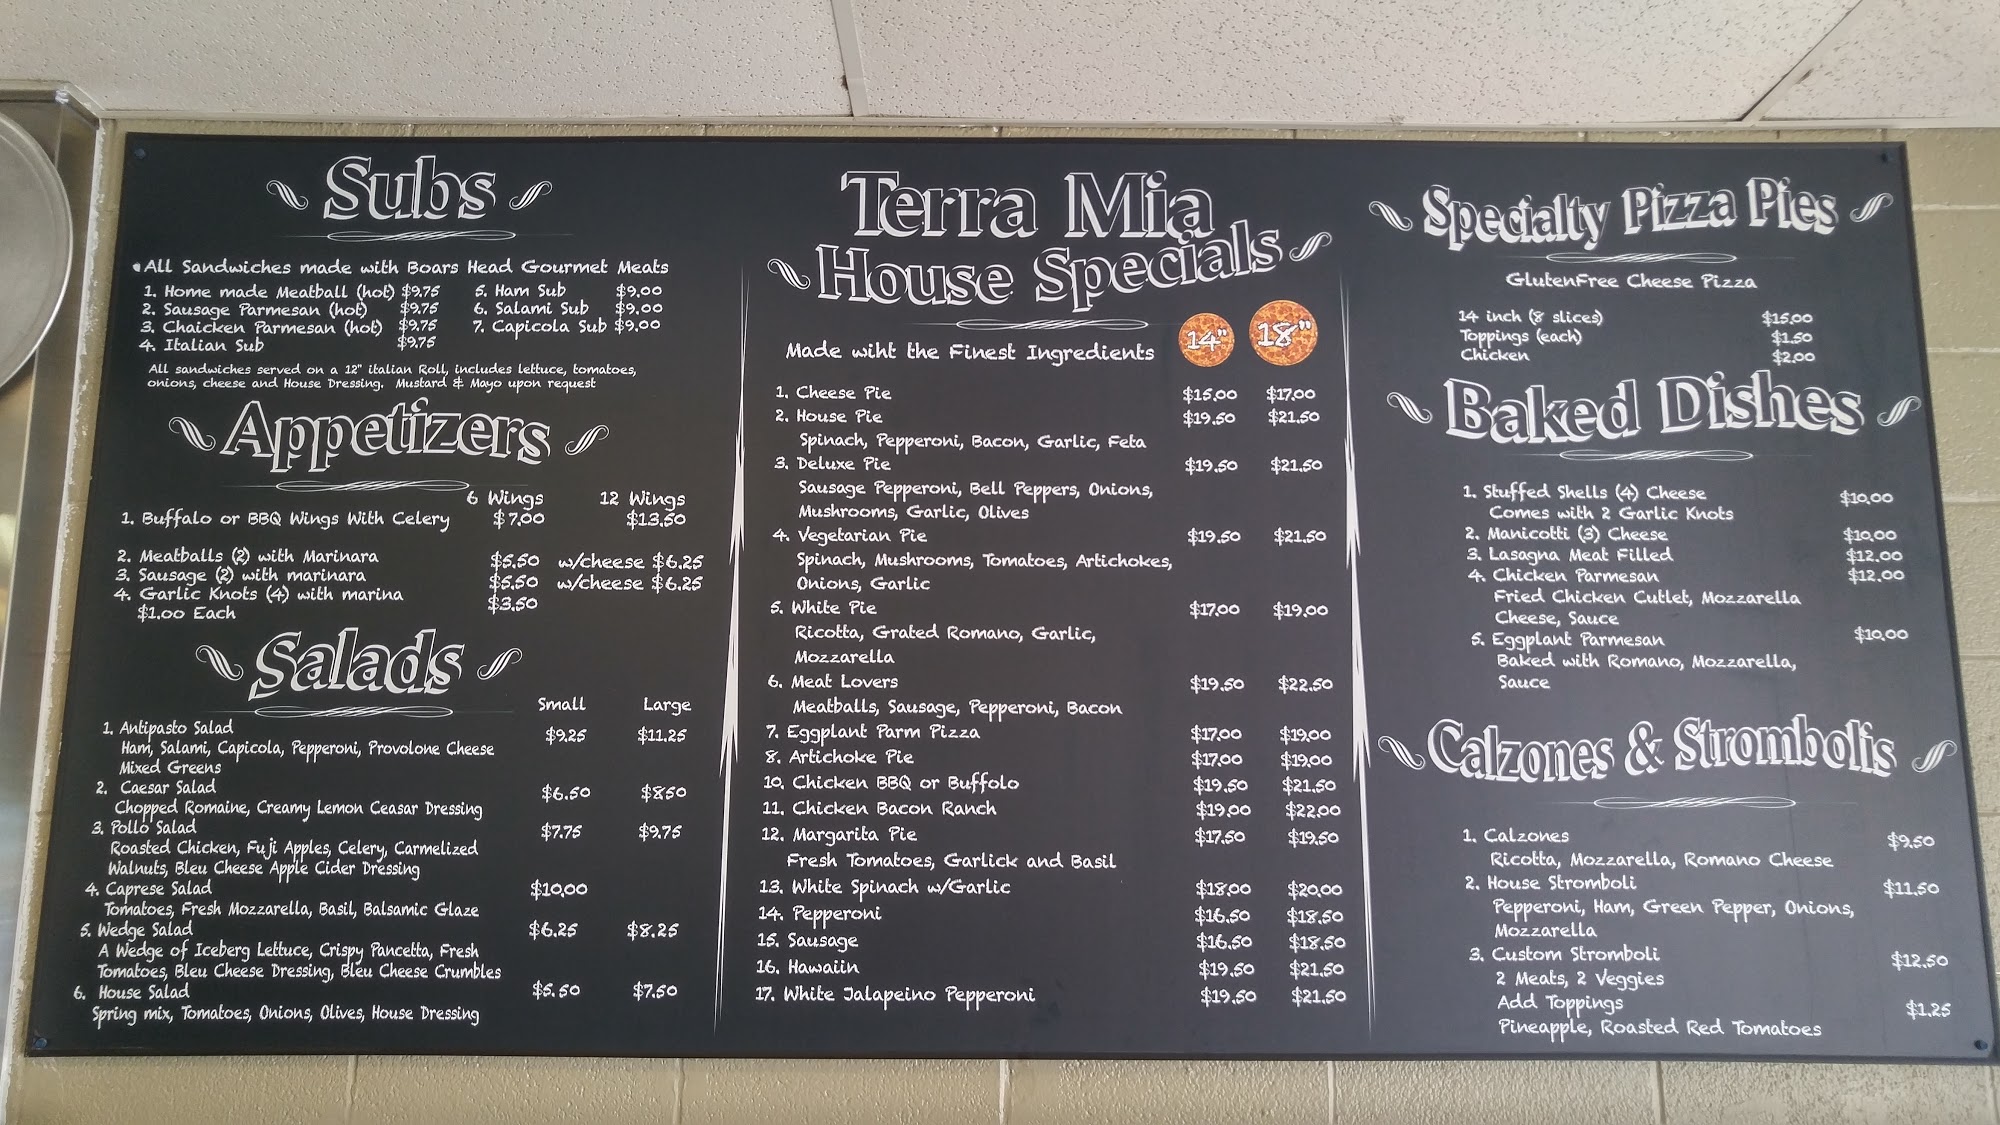 Subs
All Sandwiches made with Boars Head Gourmet Meats
1. Home made Meatball (hot) $9.75
2. Sausage Parmesan (hot) $9.75
3. Chaicken Parmesan (hot) $9.75
4. Italian Sub $9.75
5. Ham Sub $9.00
6. Salami Sub $9.00
7. Capicola Sub $9.00
All sandwiches served on a 12" italian Roll, includes lettuce, tomatoes,
onions, cheese and House Dressing. Mustard & Mayo upon request
Appetizers
6 Wings 12 Wings
1. Buffalo or BBQ Wings With Celery $7.00 $13.50
2. Meatballs (2) with Marinara $5.50 w/cheese $6.25
3. Sausage (2) with marinara $5.50 w/cheese $6.25
4. Garlic Knots (4) with marina $3.50
$1.00 Each
Salads
Small Large
1. Antipasto Salad $9.25 $11.25
Ham, Salami, Capicola, Pepperoni, Provolone Cheese
Mixed Greens
2. Caesar Salad $6.50 $850
Chopped Romaine, Creamy Lemon Ceasar Dressing
3. Pollo Salad $7.75 $9.75
Roasted Chicken, Fuji Apples, Celery, Carmelized
Walnuts, Bleu Cheese Apple Cider Dressing
4. Caprese Salad $10.00
Tomatoes, Fresh Mozzarella, Basil, Balsamic Glaze
5. Wedge Salad $6.25 $8.25
A Wedge of Iceberg Lettuce, Crispy Pancetta, Fresh
Tomatoes, Bleu Cheese Dressing, Bleu Cheese Crumbles
6. House Salad $5.50 $7.50
Spring mix, Tomatoes, Onions, Olives, House Dressing
Terra Mia
House Specials
Made wiht the Finest Ingredients 14" 18"
1. Cheese Pie $15.00 $17.00
2. House Pie $19.50 $21.50
Spinach, Pepperoni, Bacon, Garlic, Feta
3. Deluxe Pie $19.50 $21.50
Sausage Pepperoni, Bell Peppers, Onions,
Mushrooms, Garlic, Olives
4. Vegetarian Pie $19.50 $21.50
Spinach, Mushrooms, Tomatoes, Artichokes,
Onions, Garlic
5. White Pie $17.00 $19.00
Ricotta, Grated Romano, Garlic,
Mozzarella
6. Meat Lovers $19.50 $22.50
Meatballs, Sausage, Pepperoni, Bacon
7. Eggplant Parm Pizza $17.00 $19.00
8. Artichoke Pie $17.00 $19.00
10. Chicken BBQ or Buffolo $19.50 $21.50
11. Chicken Bacon Ranch $19.00 $22.00
12. Margarita Pie $17.50 $19.50
Fresh Tomatoes, Garlick and Basil
13. White Spinach w/Garlic $18.00 $20.00
14. Pepperoni $16.50 $18.50
15. Sausage $16.50 $18.50
16. Hawaiin $19.50 $21.50
17. White Jalapeino Pepperoni $19.50 $21.50
Specialty Pizza Pies
GlutenFree Cheese Pizza
14 inch (8 slices) $15.00
Toppings (each) $1.50
Chicken $2.00
Baked Dishes
1. Stuffed Shells (4) Cheese $10.00
Comes with 2 Garlic Knots
2. Manicotti (3) Cheese $10.00
3. Lasagna Meat Filled $12.00
4. Chicken Parmesan $12.00
Fried Chicken Cutlet, Mozzarella
Cheese, Sauce
5. Eggplant Parmesan $10.00
Baked with Romano, Mozzarella,
Sauce
Calzones & Strombolis
1. Calzones $9.50
Ricotta, Mozzarella, Romano Cheese
2. House Stromboli $11.50
Pepperoni, Ham, Green Pepper, Onions,
Mozzarella
3. Custom Stromboli $12.50
2 Meats, 2 Veggies
Add Toppings $1.25
Pineapple, Roasted Red Tomatoes